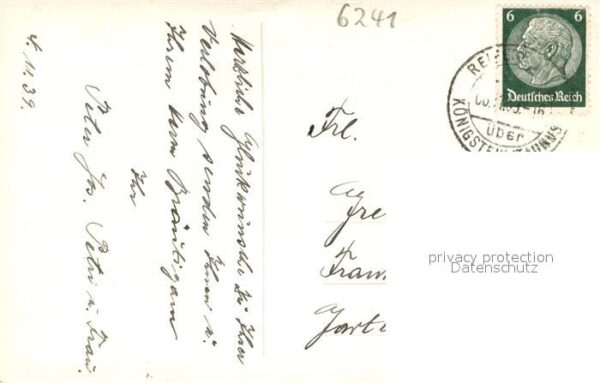 6241
6 6
Deutsches Reich
über
KÖNIGSTEIN TAUNUS
4. 11. 39.
Herzliche Glückwünsche zu Ihrer
Verlobung senden Ihnen u.
Ihrem Herrn Bräutigam
Ihr
Peter Jos. Petri u. Frau.
Frl.
privacy protection
Datenschutz